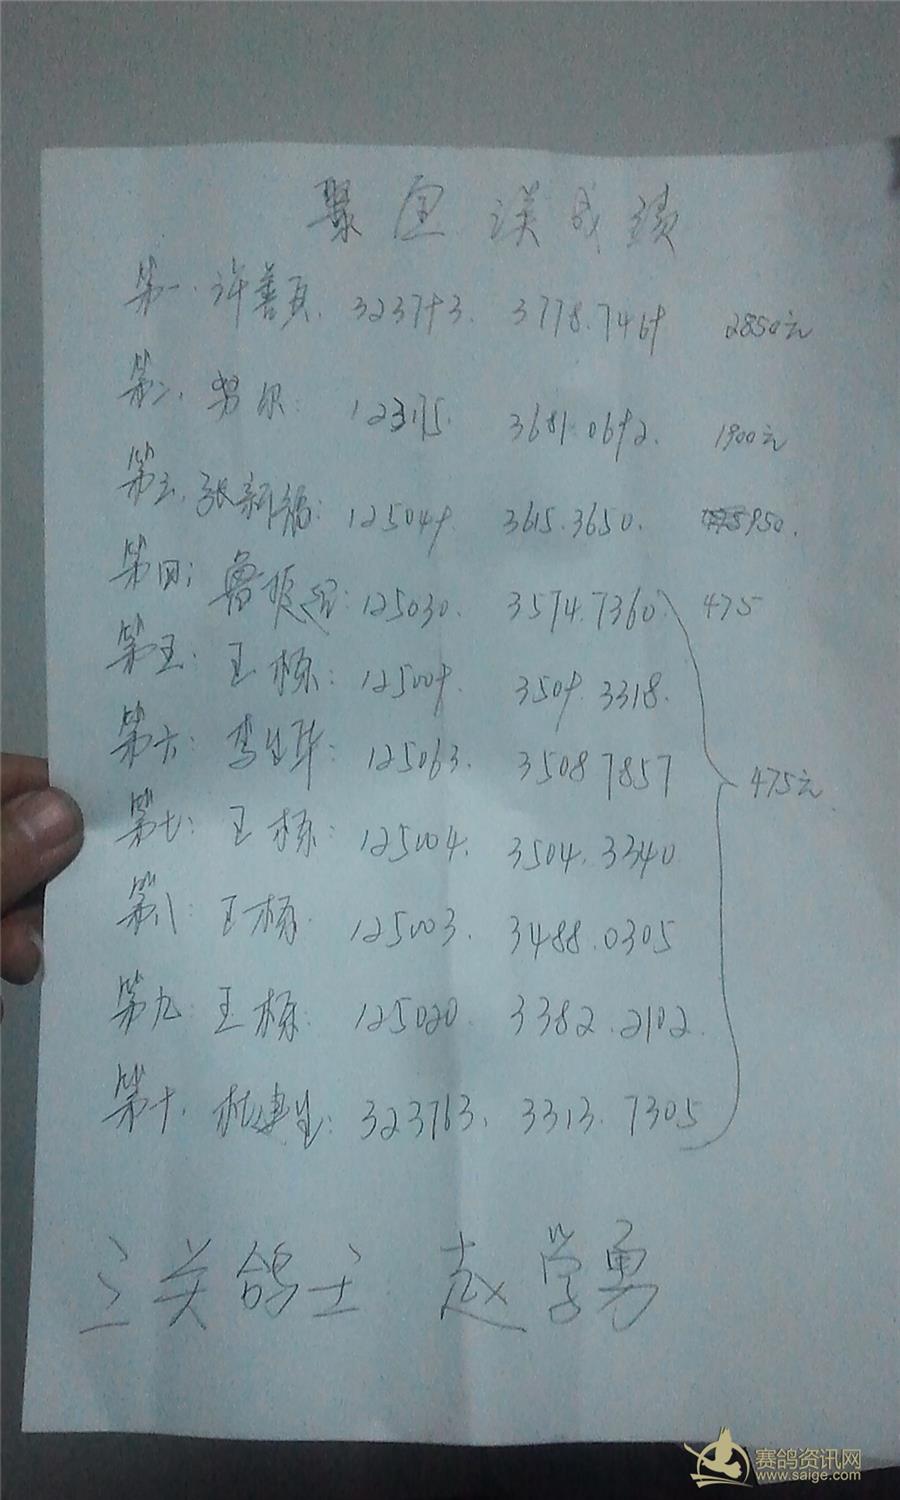 第一、许善真. 323793. 3778.7469 2850元
第二、努尔: 3681.0692. 1900元
第三、张新福: 125049. 3615.3650. 950.
第四: 鲁 125030. 3574.7360. 475
第五: 王栋: 125009. 3509.3318.
第六: 李生华: 125063. 3508 7857
475元
第七: 王栋: 125004. 3504.3340
第八: 王栋. 125003. 3488.0305
第九: 王栋: 125020. 3382.2102.
第十. 杜建生: 323763. 3313.7305
三关鸽主 赵学勇
赛鸽资讯网
www.saige.com